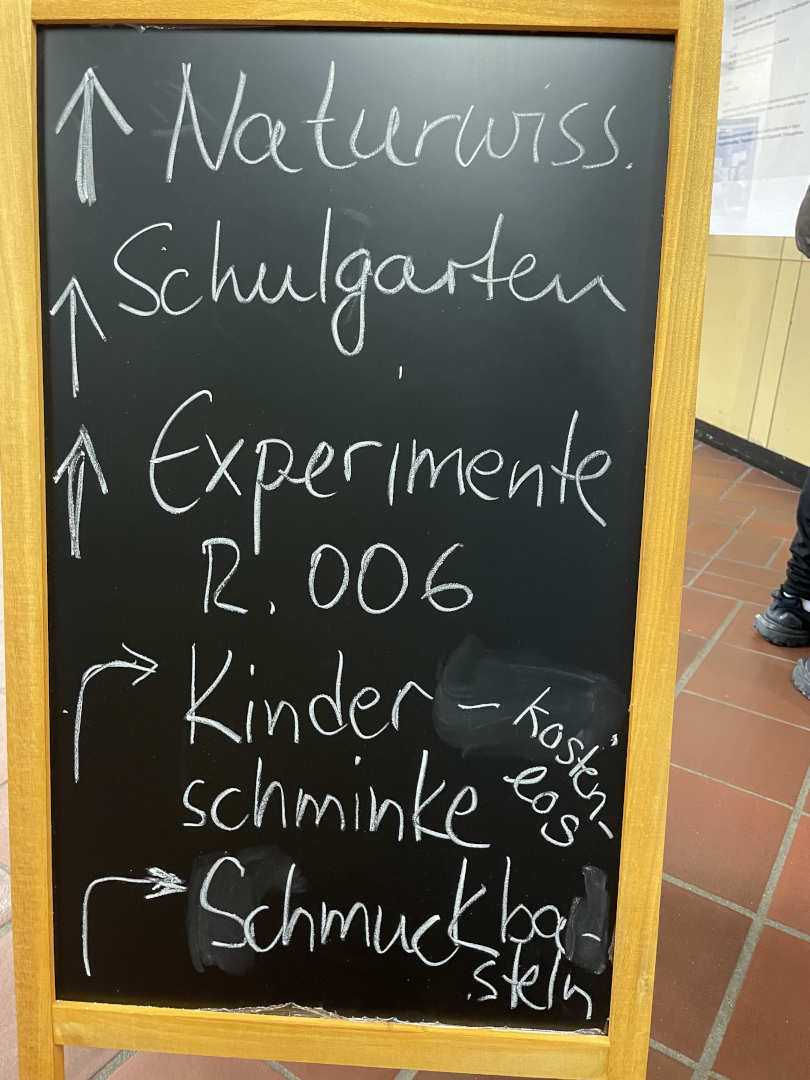 ↑ Naturwiss.
↑ Schulgarten
↑ Experimente
R. 006
↱ Kinder-
schminke
kosten-
los
↱ Schmuckba-
steln